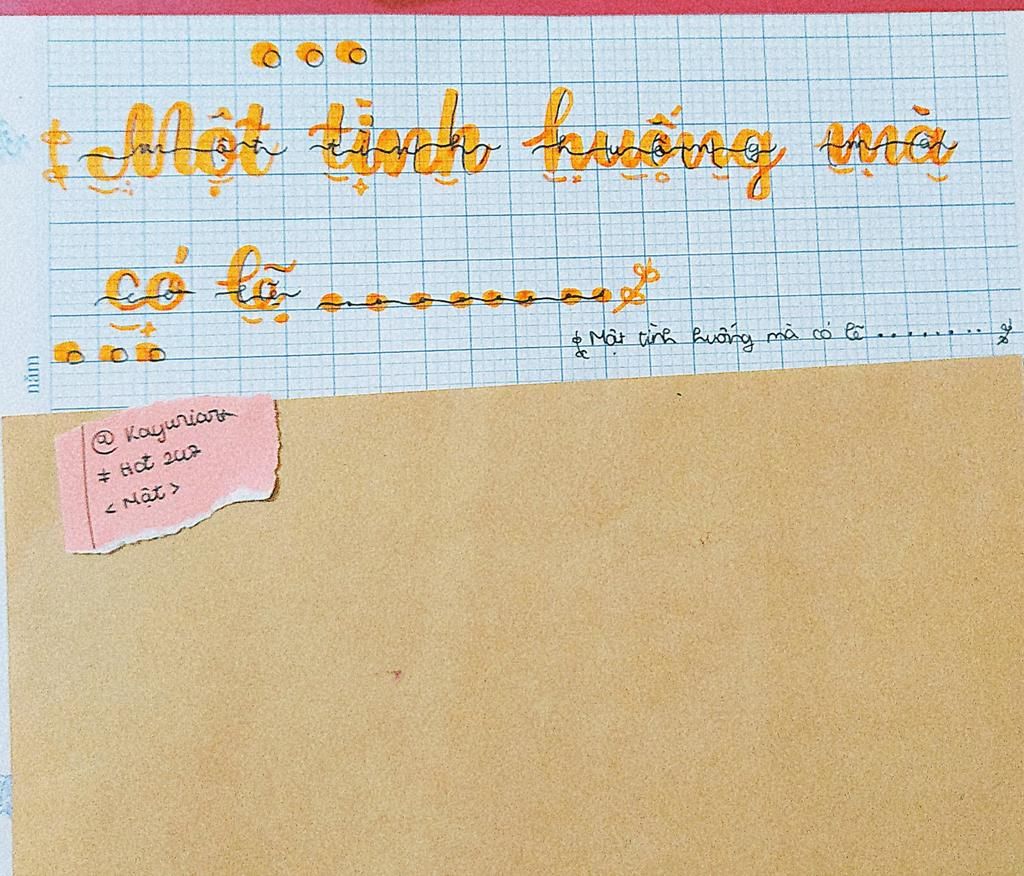 Một tình huống mà
có lẽ ........
Một tình huống mà có lẽ ........
năm
@ Kayuriart
# Hot 247
< Mật >